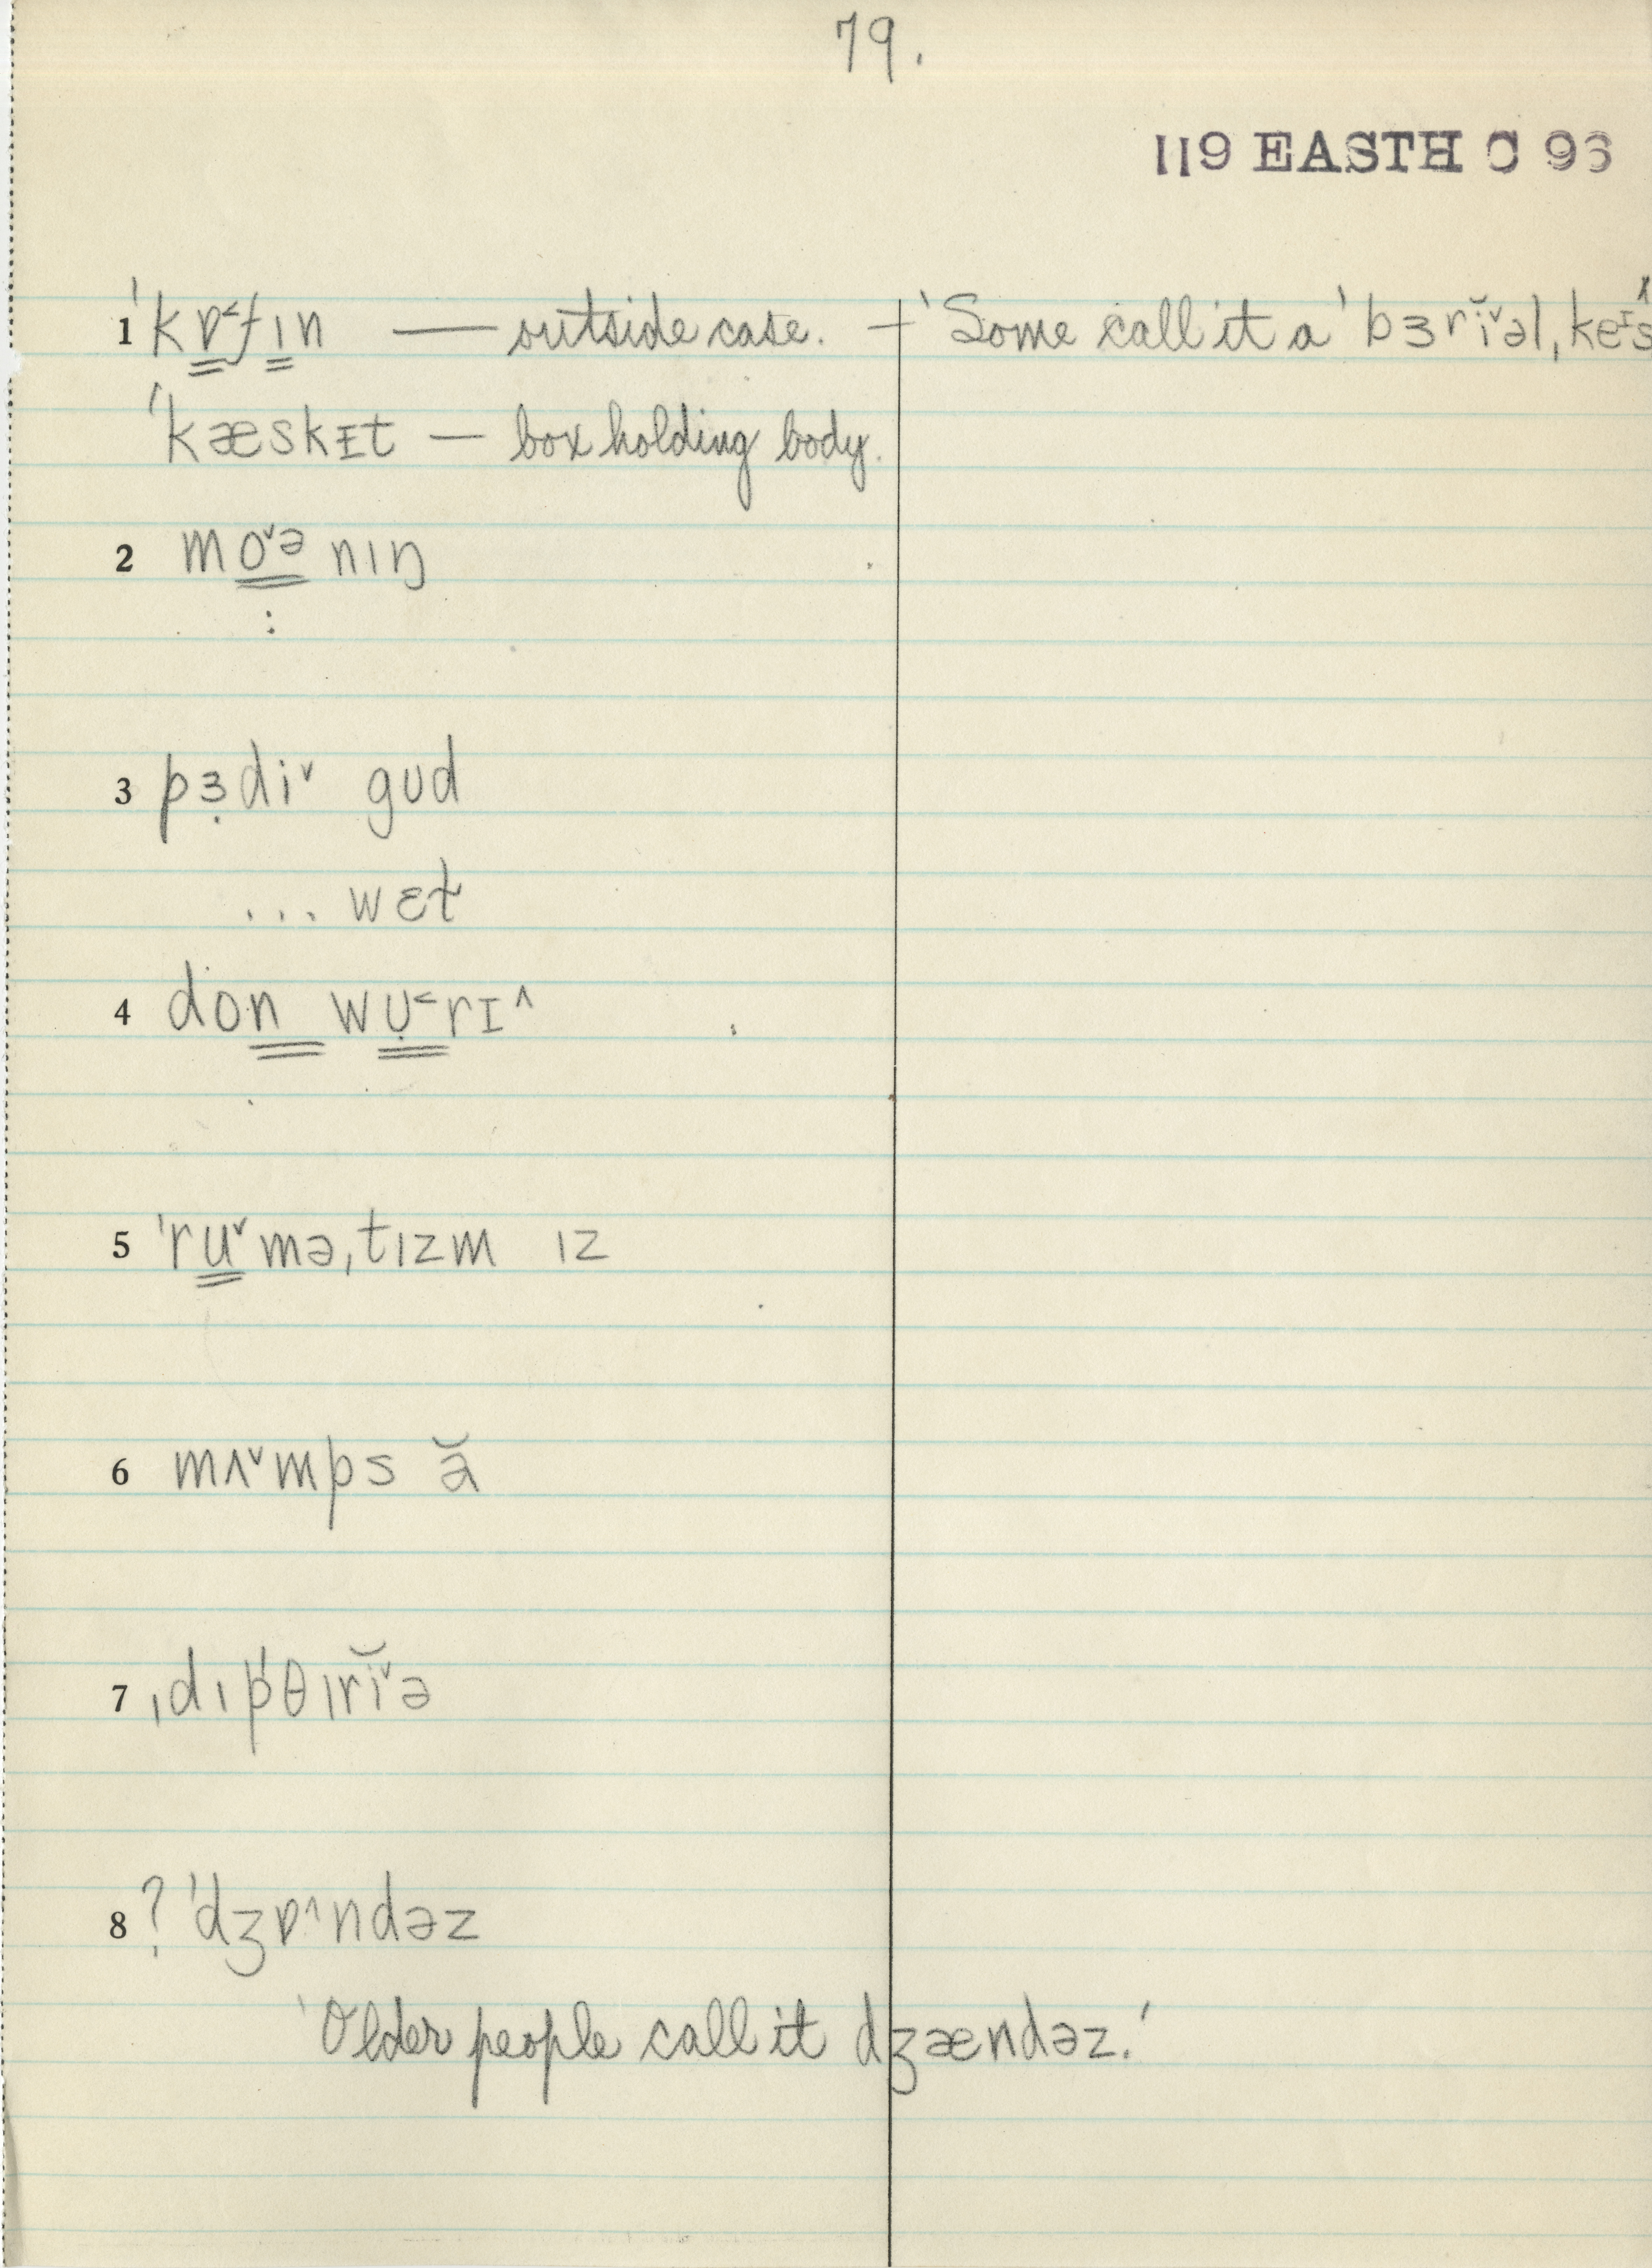 79.
119 EASTH C 96
1 ˈkɒ˂fɪn — outside case. — ‘Some call it a ˈbɜrĭ˅əl,keᶦs’
ˈkæskɪt — box holding body.
2 mo˅ᵊnɪŋ
:
3 pɜ̣di˅ gʊd
... wɛt
4 don wʊ̣˂rɪ˄
5 ˈru˅məˌtɪzm ɪz
6 mʌ˅mps ə̆
7 ˌdɪpˈθɪrĭ˅ə
8 ? ˈdʒɒ˄ndəz
‘Older people call it dʒændəz.’